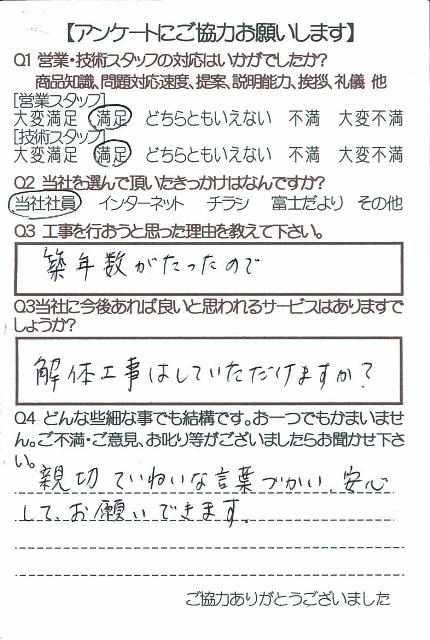 【アンケートにご協力お願いします】
Q1 営業・技術スタッフの対応はいかがでしたか?
商品知識、問題対応速度、提案、説明能力、挨拶、礼儀 他
[営業スタッフ]
大変満足 満足 どちらともいえない 不満 大変不満
[技術スタッフ]
大変満足 満足 どちらともいえない 不満 大変不満
Q2 当社を選んで頂いたきっかけはなんですか?
当社社員 インターネット チラシ 富士だより その他
Q3 工事を行おうと思った理由を教えて下さい。
築年数がたったので
Q3当社に今後あれば良いと思われるサービスはありますで
しょうか?
解体工事はしていただけますか?
Q4 どんな些細な事でも結構です。お一つでもかまいませ
ん。ご不満・ご意見、お叱り等がございましたらお聞かせ下さ
い。
親切ていねいな言葉づかい、安心
して、お願いできます。
ご協力ありがとうございました